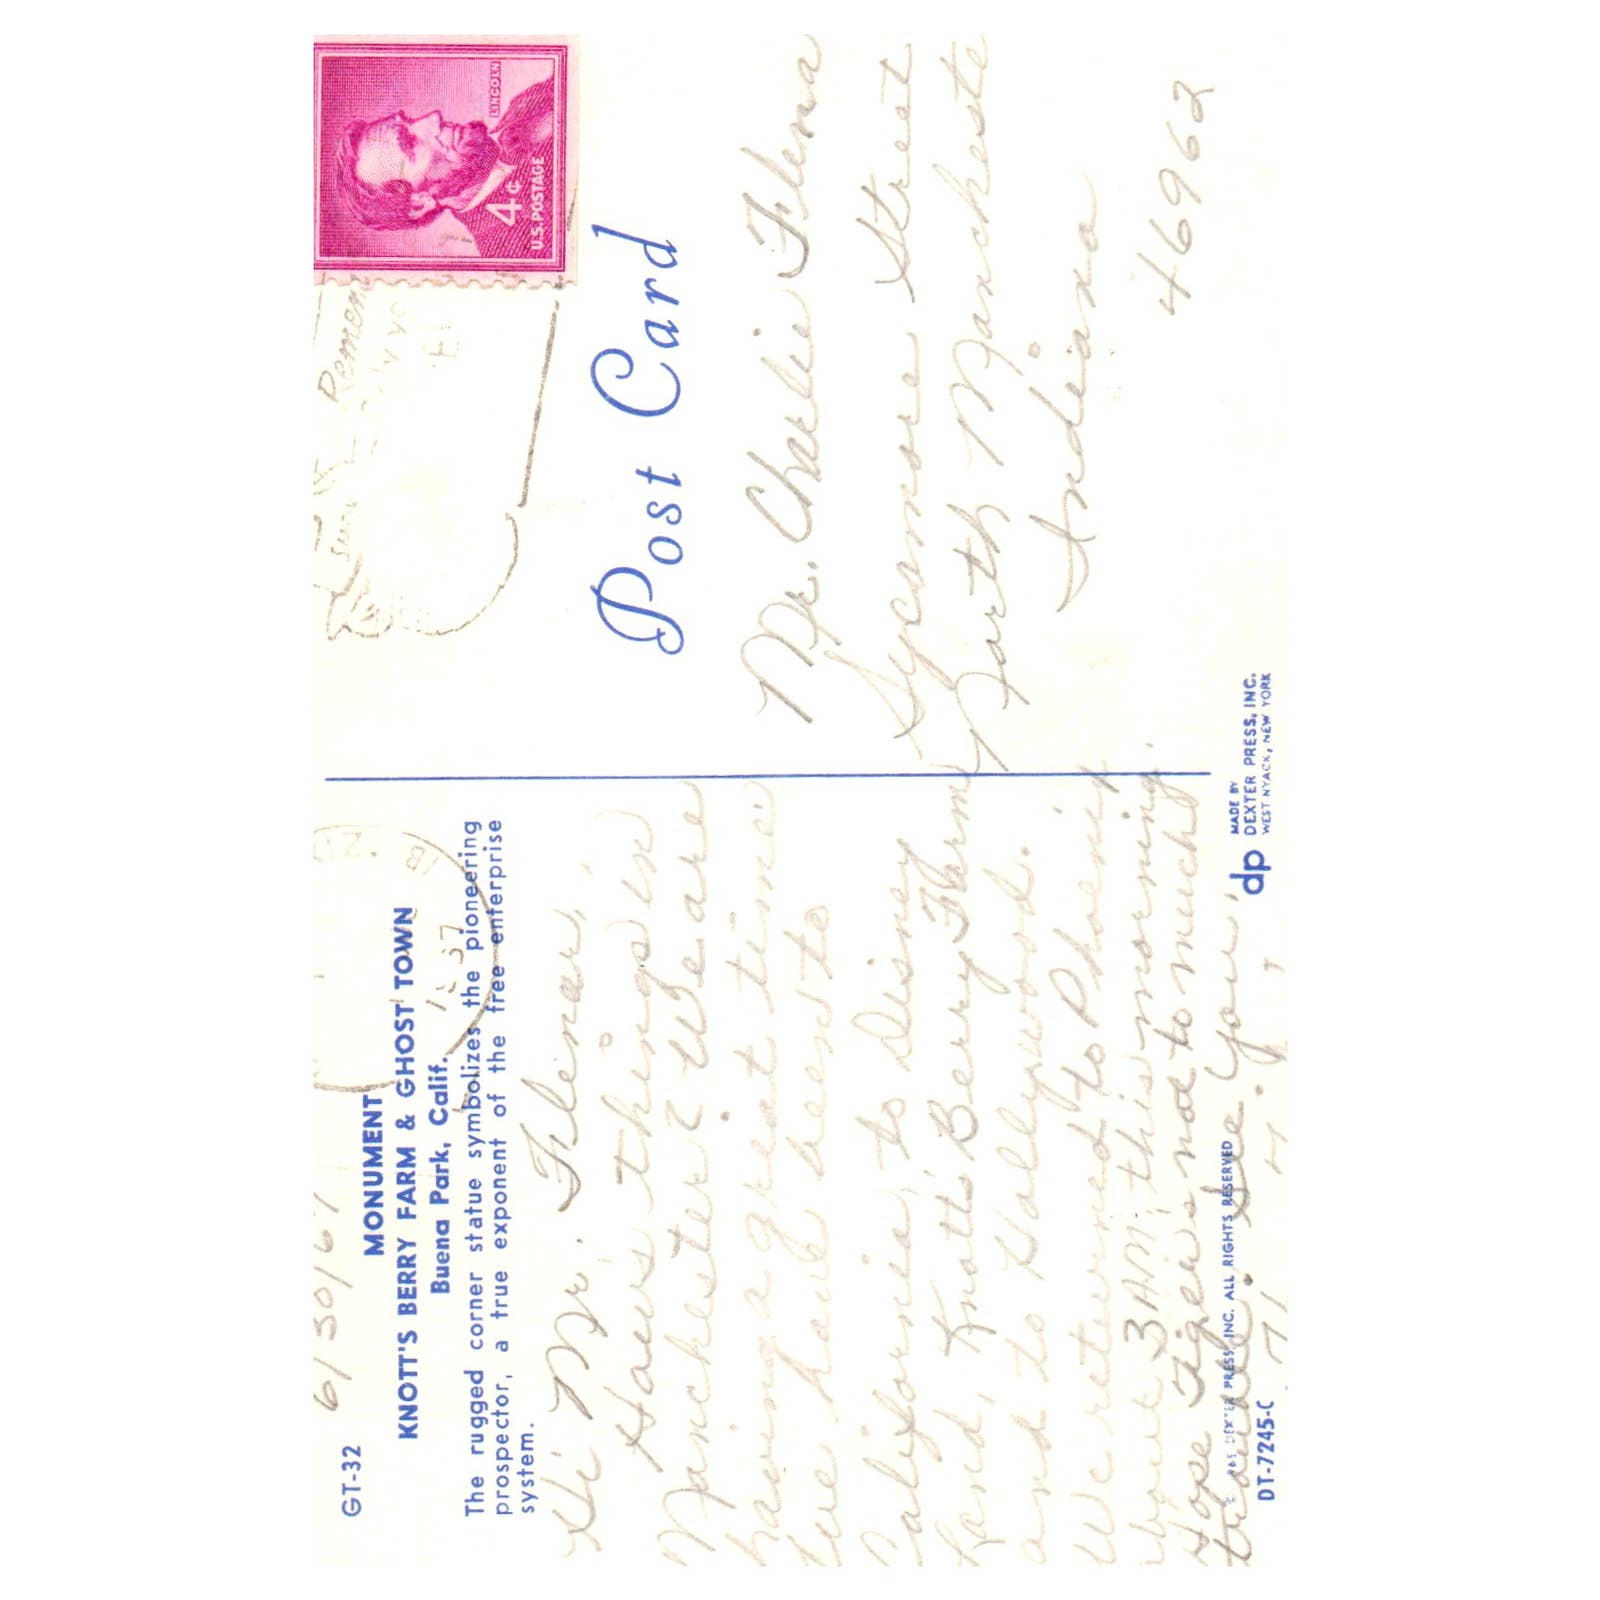 6/30/67
GT-32
MONUMENT
KNOTT'S BERRY FARM & GHOST TOWN
Buena Park, Calif.
The rugged corner statue symbolizes the pioneering
prospector, a true exponent of the free enterprise
system.
Hi Mr. Flenar,
Hows things in
Manchester? We are
having a great time
We have went to
California, to Disney
Land, Knotts Berry Farm,
and to Hollywood.
We returned to Phoenix
about 3 AM. this morning.
Hope Tiger's not to much
trouble. See You,
© 1965 DEXTER PRESS, INC. ALL RIGHTS RESERVED
DT-7245-C
LINCOLN
4¢
U.S. POSTAGE
Post Card
Mr. Charlie Flenar
Sycamore Street
North Manchester
Indiana
46962
dp
MADE BY
DEXTER PRESS, INC.
WEST NYACK, NEW YORK